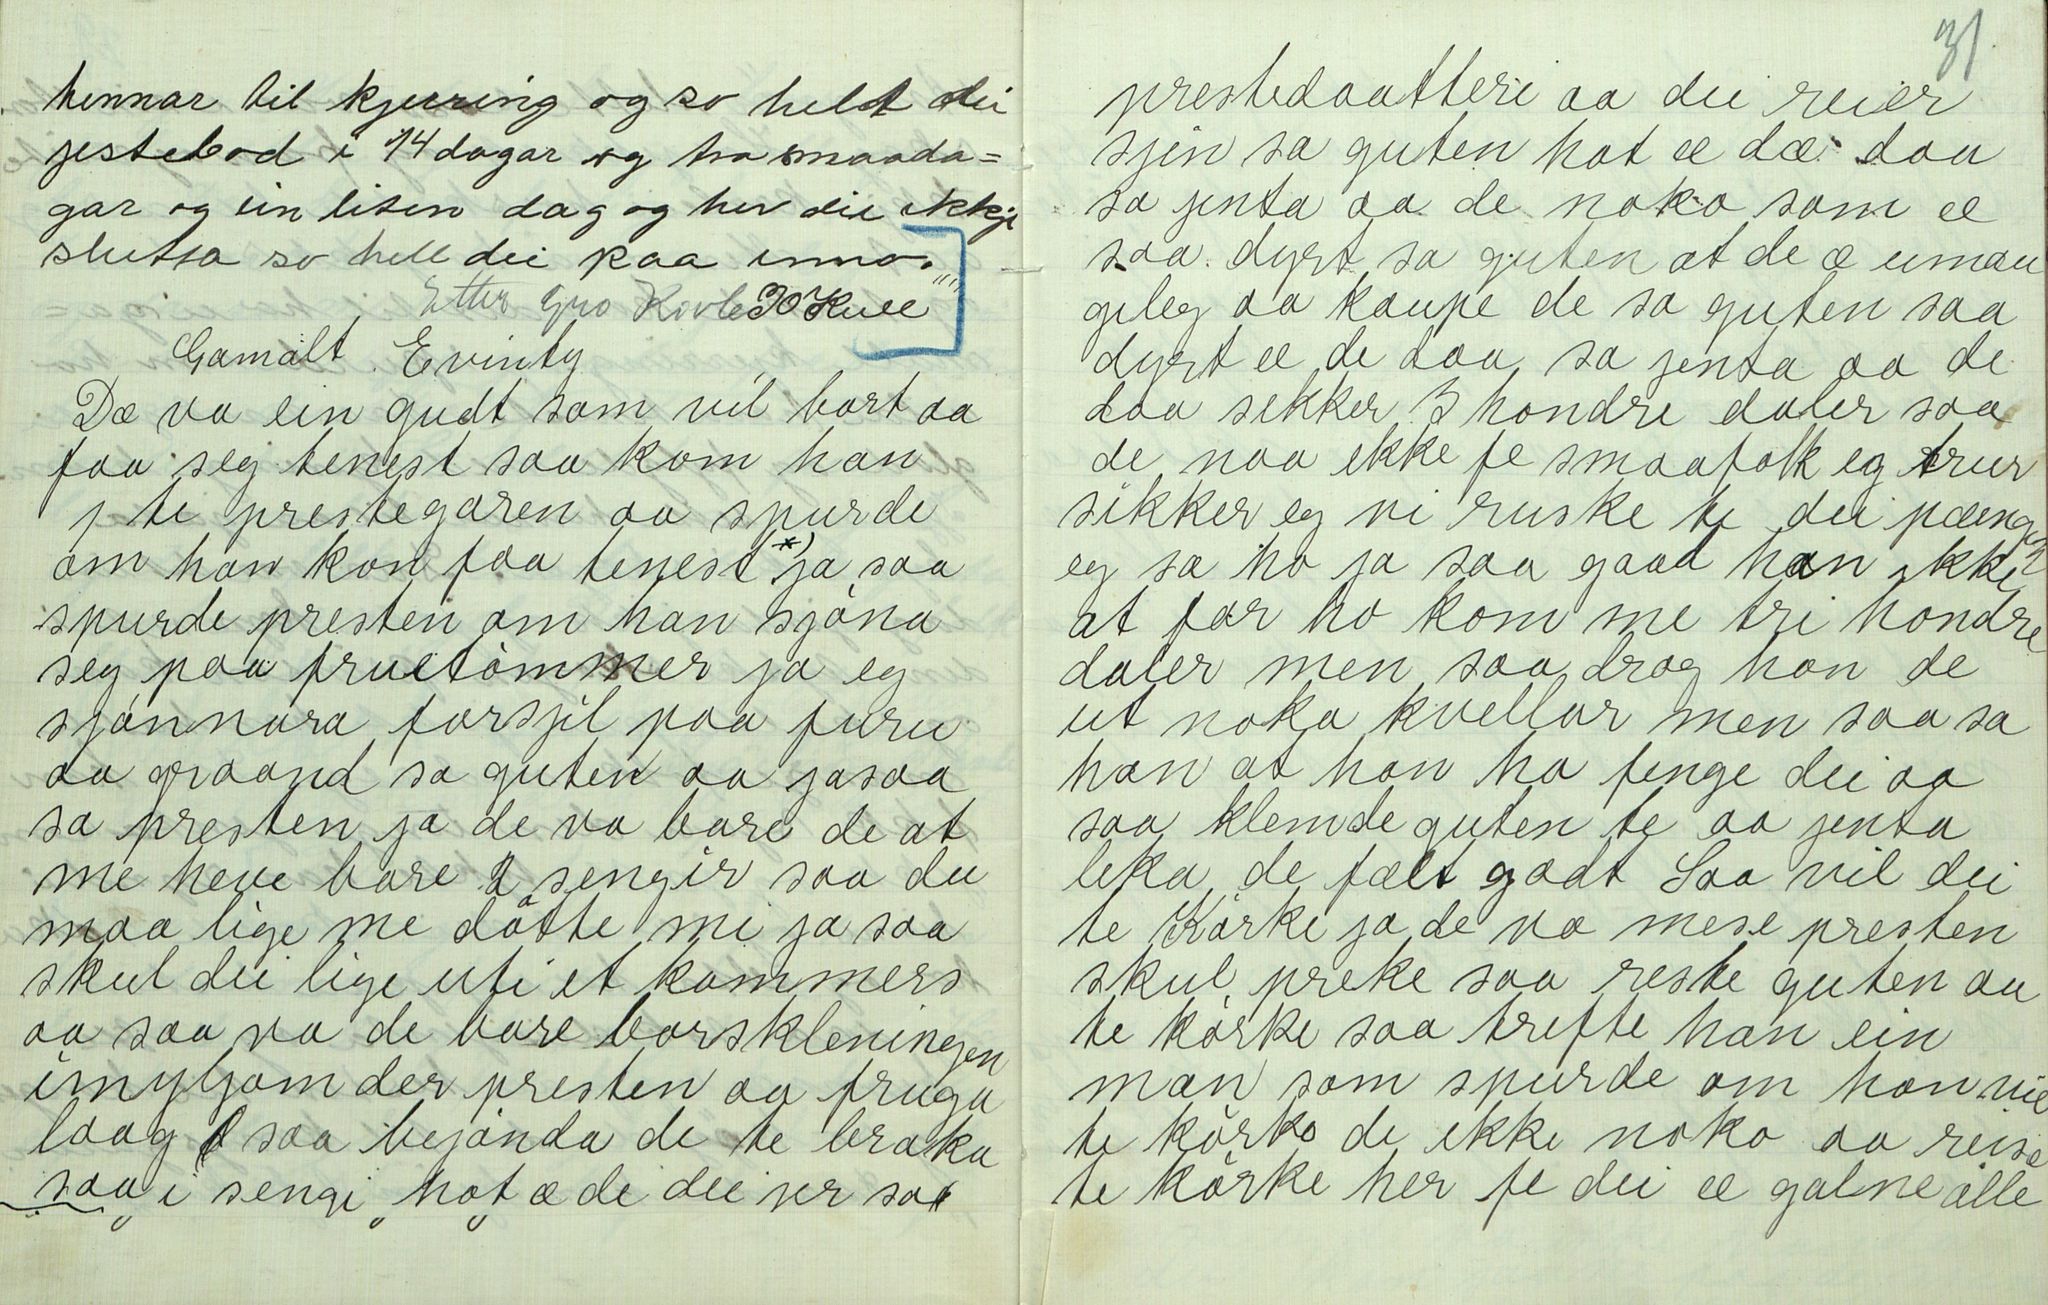 hennar til kjæring og so heldt dei
jestebod i 14 dagar og tra smaada=
gar og ein liten dag og hev dei ikkje
slutta so held dei paa enno."
Etter Gro Kovle TO Kvee
Gamalt Evinty
Dæ va ein gudt som vil bort aa
faa seg tenest saa kom han
te prestegaren aa spurde
om han kon faa tenest *) ja saa
spurde presten om han sjøna
seg paa fruetømmer ja eg
sjønnara forsjil paa furu
aa graand sa guten aa jasaa
sa presten ja de va bare de at
me heve bare 2 sengir saa du
maa lige me døtte mi ja saa
skul dei lige uti et kammers
aa saa va de bare borskleningen
imyljom der presten aa fruga
laag saa bejønda de te braka
saa i sengi hot æ de dei jer saa
31
prestedaatteri aa dei reier
sjin sa guten hot æ dæ daa
sa jenta aa de noko som æ
saa dyrt sa guten at de æ umau
geleg aa kaupe de sa guten saa
dyrt æ de daa sa jenta aa de
daa sekker 3 hondre daler saa
de naa ikke fe smaafolk eg trur
sikker eg vi ruske te dei pængen
eg sa ho ja saa gaad han ikke
at før ho kom me tri hondre
daler men saa drog han de
ut noka kvellar men saa sa
han at han ha fenge dei aa
saa klemde guten te aa jenta
leka de fælt godt Saa vil dei
te Kørke ja de va mese presten
skul preke saa reste guten aa
te kørke saa trefte han ein
man som spurde om han vil
te kørko de ikke noko aa reisa
te kørke her fe dei æ galne alle